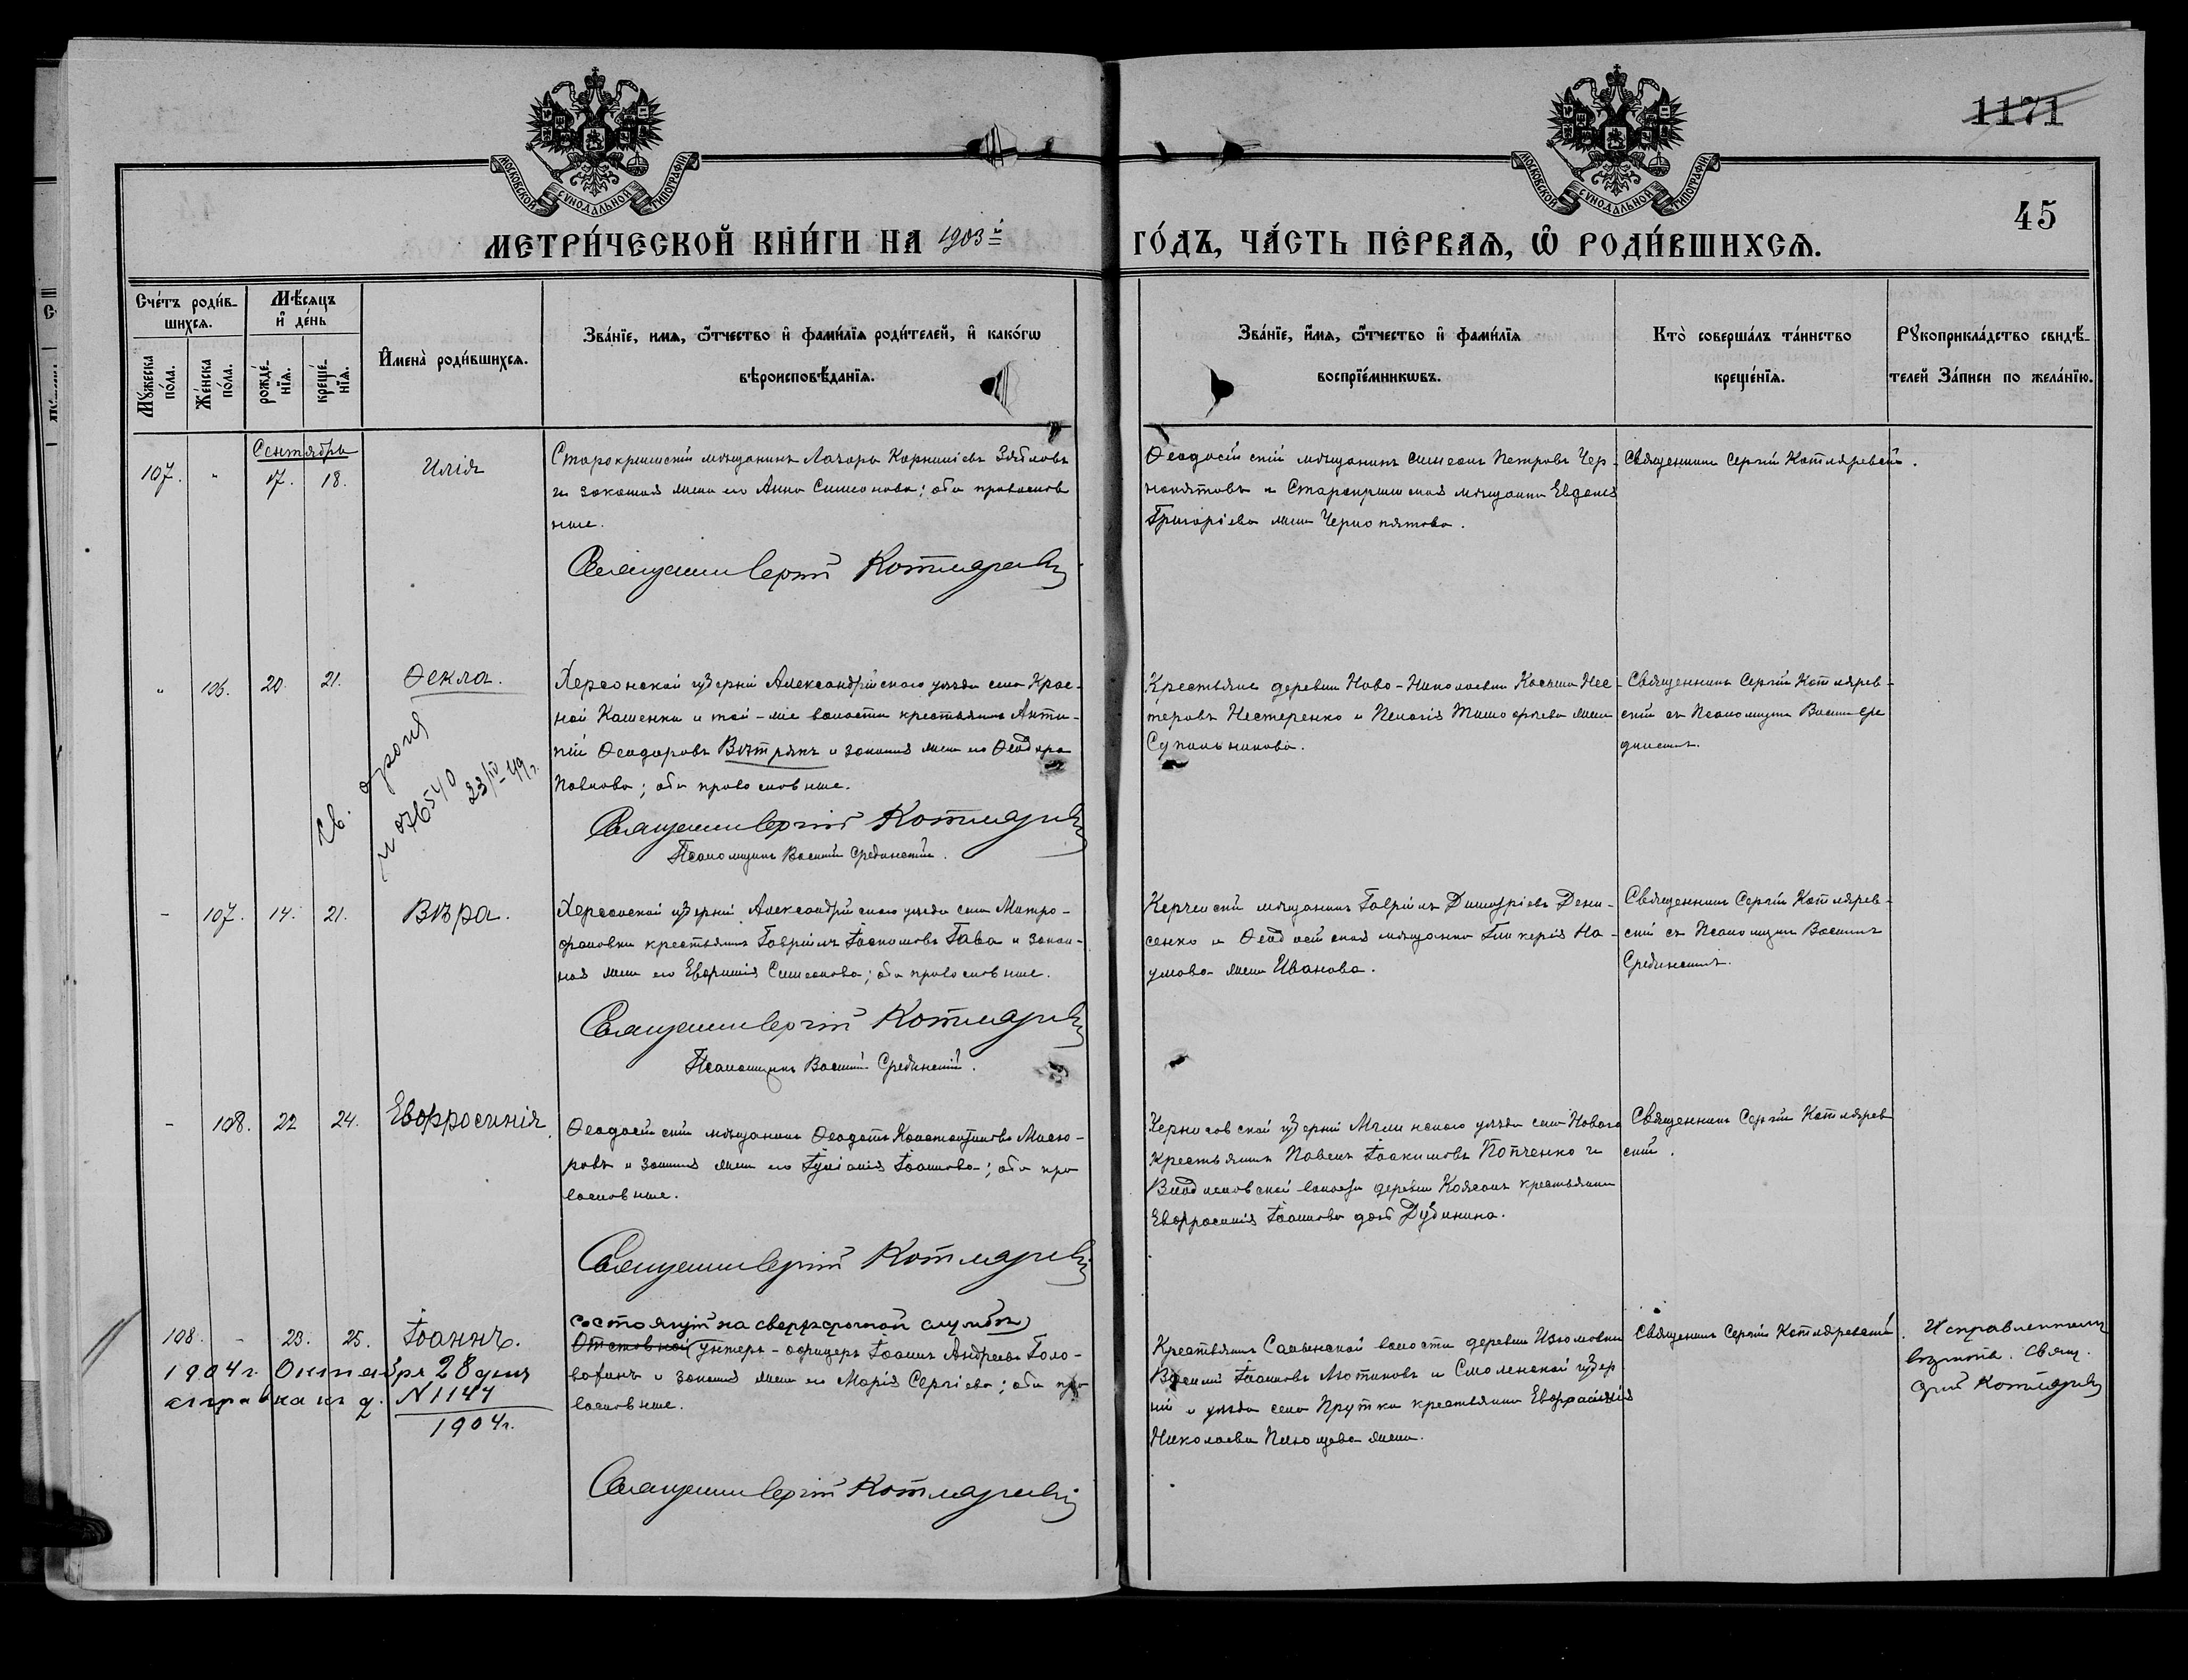 1171
45
МОСКОВСКОЙ СѴНОДАЛЬНОЙ ТИПОГРАФІИ
МОСКОВСКОЙ СѴНОДАЛЬНОЙ ТИПОГРАФІИ
МЕТРИ́ЧЕСКОЙ КНИ́ГИ НА 1903й ГО́ДЪ, ЧА́СТЬ ПЕ́РВАЯ, Ѿ РОДИ́ВШИХСЯ.
Сче́тъ роди́в-
шихся.
Мꙋжеска по́ла.
Же́нска по́ла.
Мѣ́сяцъ
и де́нь
рожде́-
нїя.
креще́-
нїя.
Имена̀ роди́вшихся.
Зва́нїе, имя, ѿтчество и фами́лїя роди́телей, и како́гѡ
вѣроисповѣ́данїя.
Зва́нїе, имя, ѿтчество и фами́лїя
воспрїе́мникѡвъ.
Кто̀ соверша́лъ та́инство
креще́нїя.
Рꙋкоприкла́дство свидѣ́-
телей За́писи по жела́нїю.
Сентябрь
107. „ 17. 18.
Илія
Старокрымскій мѣщанинъ Лазарь Корниліевъ Зябловъ
и законная жена его Анна Симеонова; оба православ
ные.
Священникъ Сергій Котляревскій
Ѳеодосійскій мѣщанинъ Симеонъ Петровъ Чер-
нопятовъ и Старокрымская мѣщанка Евдокія
Григоріева жена Чернопятова.
Священникъ Сергій Котляревскій.
„ 106. 20. 21.
Ѳекла.
Св.
N 076540
23/IV-49г.
Херсонской губерніи Александрійскаго уѣзда села Крас-
ной Каменки и той-же волости крестьянинъ Анти-
пій Ѳеодоровъ Вѣтрякъ и законная жена его Ѳеодора
Павлова; оба православные.
Священникъ Сергій Котляревскій
Псаломщикъ Василій Срединскій.
Крестьяне деревни Ново-Николаевки Косьма Нес-
теровъ Нестеренко и Пелагія Тимофѣева жена
Супольникова.
Священникъ Сергій Котлярев-
скій съ Псаломщик Васил Сре
динскимъ.
- 107. 14. 21.
Вѣра.
Херсонской губерніи Александрійскаго уѣзда села Митро-
фановки крестьянинъ Гавріилъ Іоакимовъ Гава и закон-
ная жена его Евфимія Симеонова; оба православные.
Священникъ Сергій Котляревскій
Псаломщикъ Василій Срединскій.
Керченскій мѣщанинъ Гавріилъ Димитріевъ Дени-
сенко и Ѳеодосійская мѣщанка Гликерія На-
умова жена Иванова.
Священникъ Сергій Котлярев-
скій съ Псаломщик Василіемъ
Срединскимъ.
- 108. 22 24.
Евфросинія.
Ѳеодосійскій мѣщанинъ Ѳеодотъ Константиновъ
ровъ и законная жена его Іуліанія Іоаннова; оба пра
вославные.
Священникъ Сергій Котляревскій
Черниговской губерніи Мглинскаго уѣзда села Новаго
крестьянинъ Павелъ Іоакимовъ Попченко и
Владиславовской волости деревни Коясанъ крестьянка
Евфросинія Іоаннова дочь Дубинина.
Священникъ Сергій Котлярев
скій.
108. - 23. 25.
Іоаннъ.
1904 г. Октября 28 дня
справка къ д. N 1144
1904 г.
состоящій на сверхсрочной службѣ
Отставной унтеръ-офицеръ Іоаннъ Андреевъ Голо-
вафинъ и законная жена его Марія Сергіева; оба пра
вославные.
Священникъ Сергій Котляревскій
Крестьянинъ Салынской волости деревни Изюмовки
Василій Іоанновъ Лютиковъ и Смоленской губер
ніи и уѣзда села Прутки крестьянка Евфросинія
Николаева Плющева жена.
Священникъ Сергій Котляревскій.
Исправленному
вѣрить. Свящ.
Сергій Котляревскій